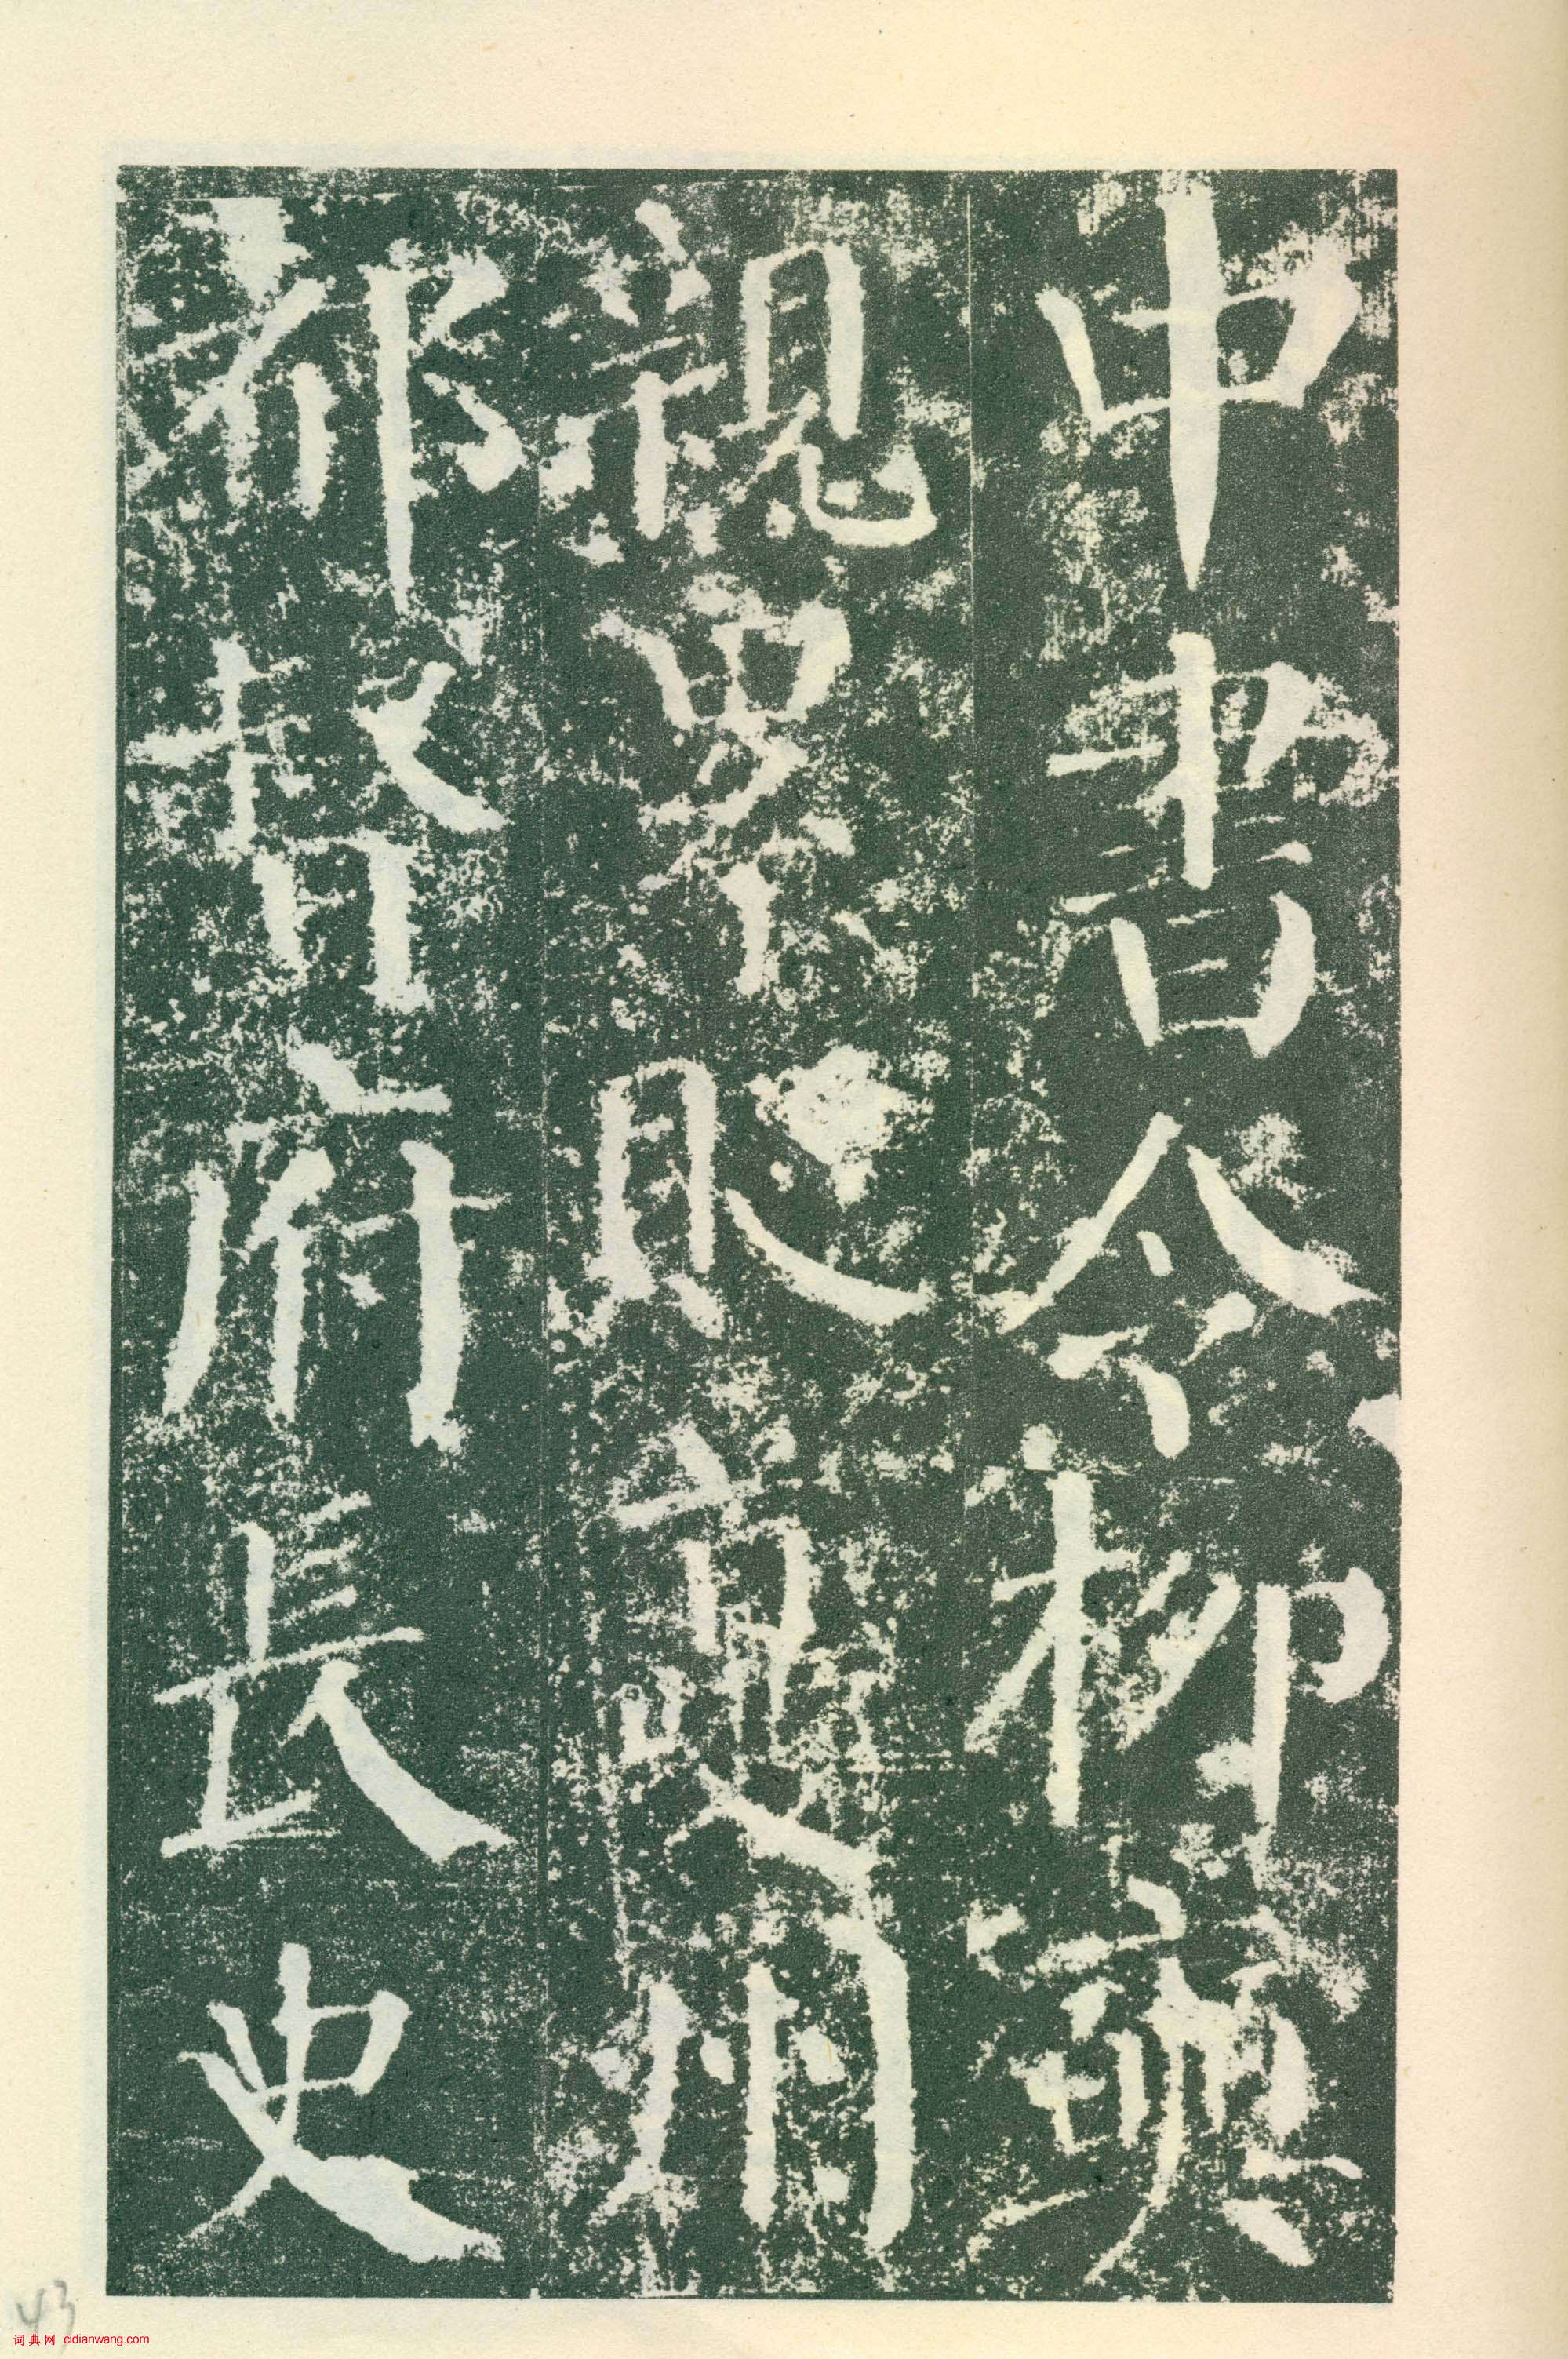 中書令柳奭
親累貶夔州
都督府長史
43
词典网 cidianwang.com